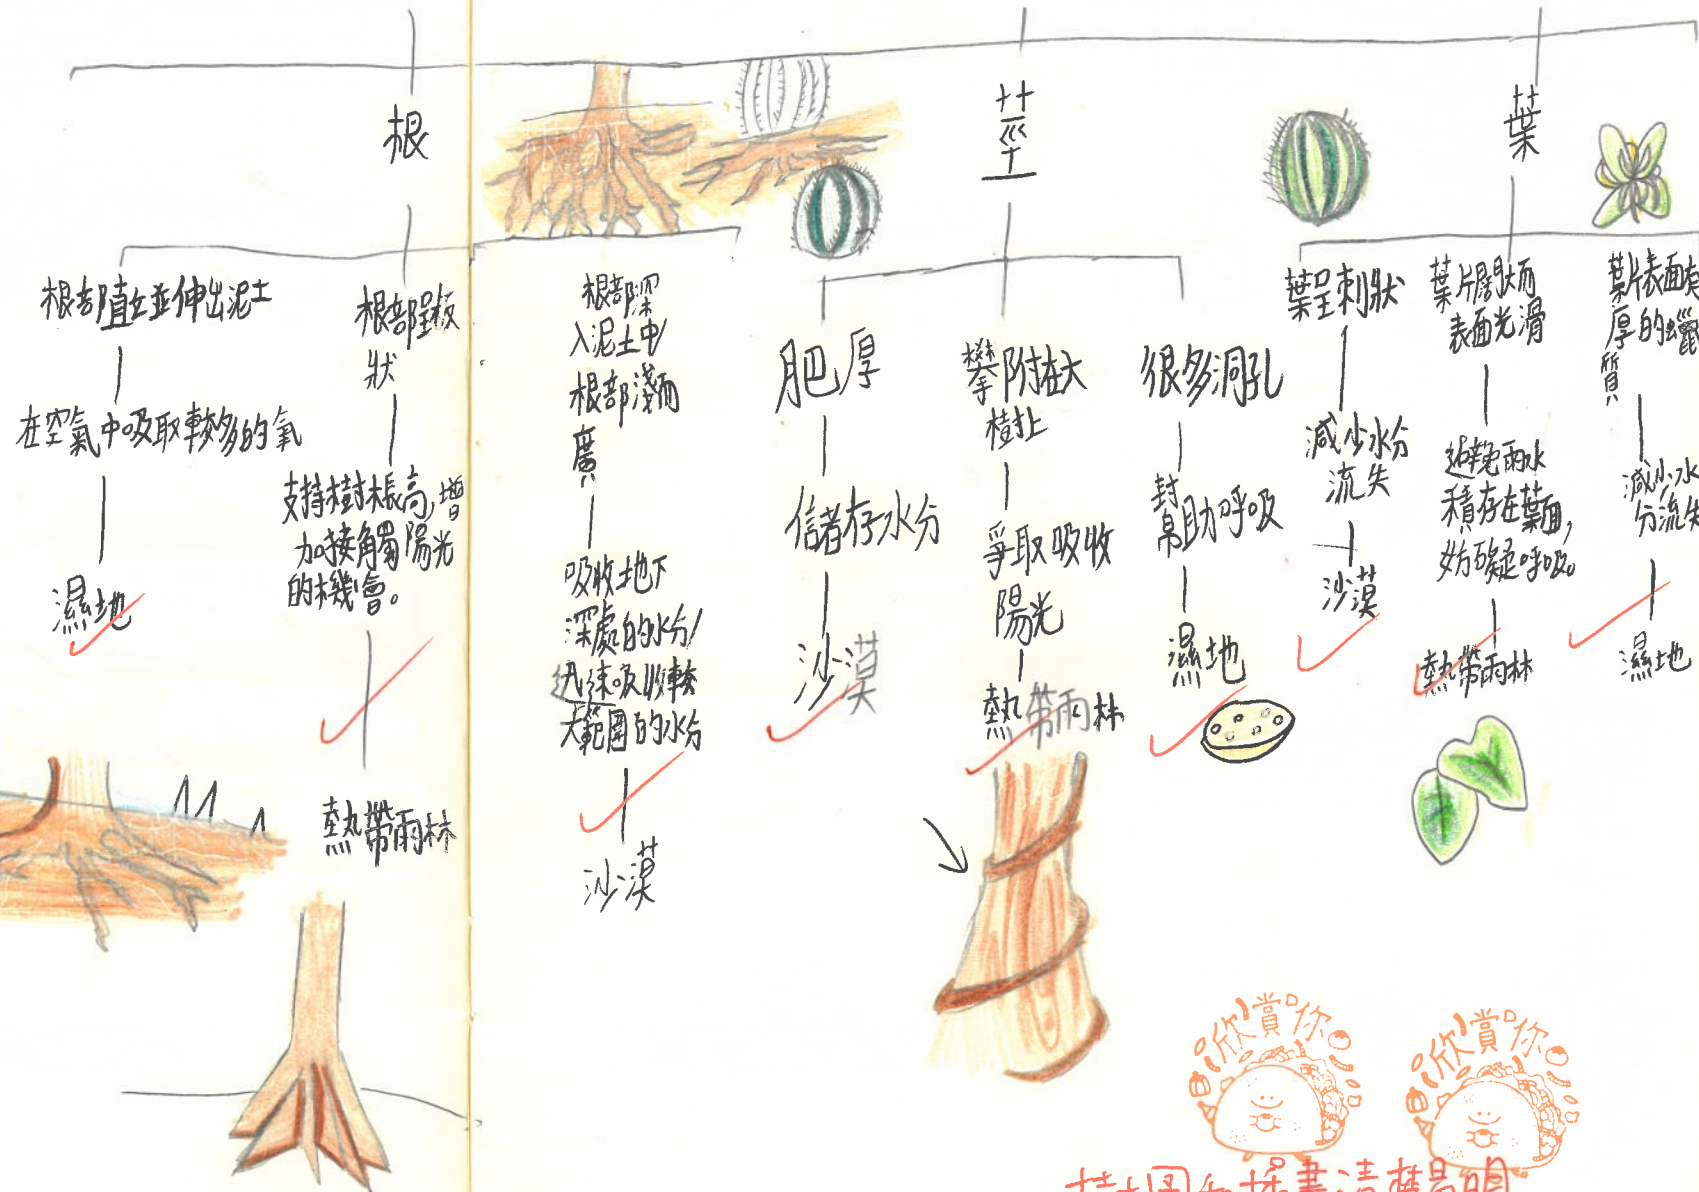 根
莖
葉
根部直立並伸出泥土
在空氣中吸取較多的氧
濕地
根部呈板
狀
支持樹木長高,增
加接觸陽光
的機會。
熱帶雨林
根部深
入泥土中/
根部淺而
廣
吸收地下
深處的水分/
迅速吸收較
大範圍的水分
沙漠
肥厚
儲存水分
沙漠
攀附在大
樹上
爭取吸收
陽光
熱帶雨林
很多洞孔
幫助呼吸
濕地
葉呈刺狀
減少水分
流失
沙漠
葉片闊大而
表面光滑
避免雨水
積存在葉面,
妨礙呼吸。
熱帶雨林
葉片表面有
厚的蠟
質
減少水
分流失
濕地
欣賞你
欣賞你